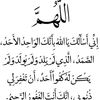 اللَّهُمَّ
إِنِّي أَسْأَلُكَ يَا اللَّهُ بِأَنَّكَ الوَاحِدُ الأَحَدُ،
الصَّمَدُ، الَّذِي لَمْ يَلِدْ وَلَمْ يُولَدْ وَلَمْ
يَكُنْ لَهُ كُفُوًا أَحَدٌ، أَنْ تَغْفِرَ لِي
ذُنُوبِي، إِنَّكَ أَنْتَ الغَفُورُ الرَّحِيمُ